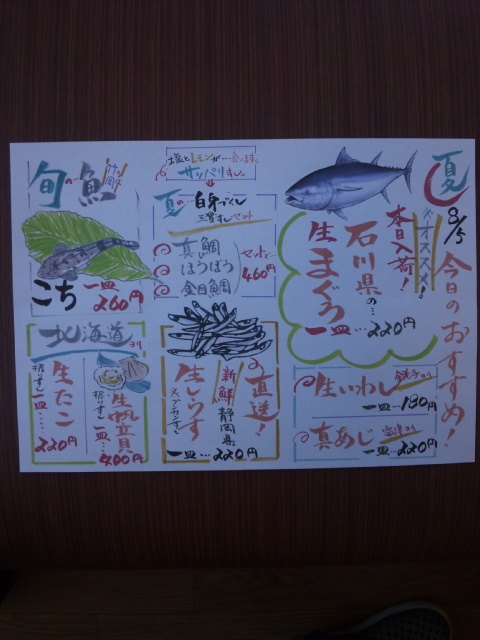 夏
8/5
今日のおすすめ!
オススメ!
本日入荷!
石川県の…
生まぐろ
一皿…220円
生いわし
銚子より
一皿…180円
真あじ
一皿…220円
塩とレモンが…合います。
サッパリすし。
夏の…白身づくし
三貫すしセット
真鯛
ほうぼう
金目鯛
セットで…
460円
の直送!
新鮮静岡県
生しらす
グンカンすし
一皿…220円
旬の魚
こち
一皿
260円
北海道より
生帆立貝
握りすし
一皿…
400円
生たこ
握りすし
一皿…
220円